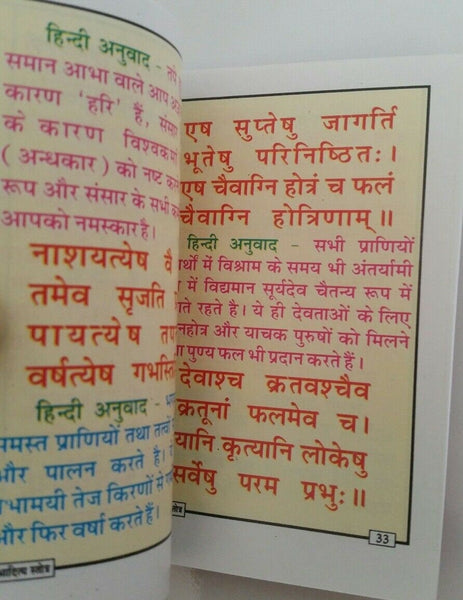 हिन्दी अनुवाद -
समान आभा वाले आप
कारण 'हरि' हैं,
के कारण विश्वकर्मा
(अन्धकार) को नष्ट
रूप और संसार के सभी
आपको नमस्कार है।
नाशयत्येष वै
तमेव सृजति
पायत्येष
वर्षत्येष
हिन्दी अनुवाद -
समस्त प्राणियों तथा तत्वों
और पालन करते है।
तेज किरणों से
और फिर वर्षा करते हैं।
स्तोत्र
एष सुप्तेषु जागर्ति
भूतेषु परिनिष्ठितः।
एष चैवाग्नि होत्रं च फलं
चैवाग्नि होत्रिणाम्॥
हिन्दी अनुवाद - सभी प्राणियों
में विश्राम के समय भी अंतर्यामी
में विद्यमान सूर्यदेव चैतन्य रूप में
रहते है। ये ही देवताओं के लिए
और याचक पुरुषों को मिलने
पुण्य फल भी प्रदान करते हैं।
देवाश्च क्रतवश्चैव
क्रतूनां फलमेव च।
यानि कृत्यानि लोकेषु
सर्वेषु परम प्रभुः॥
33